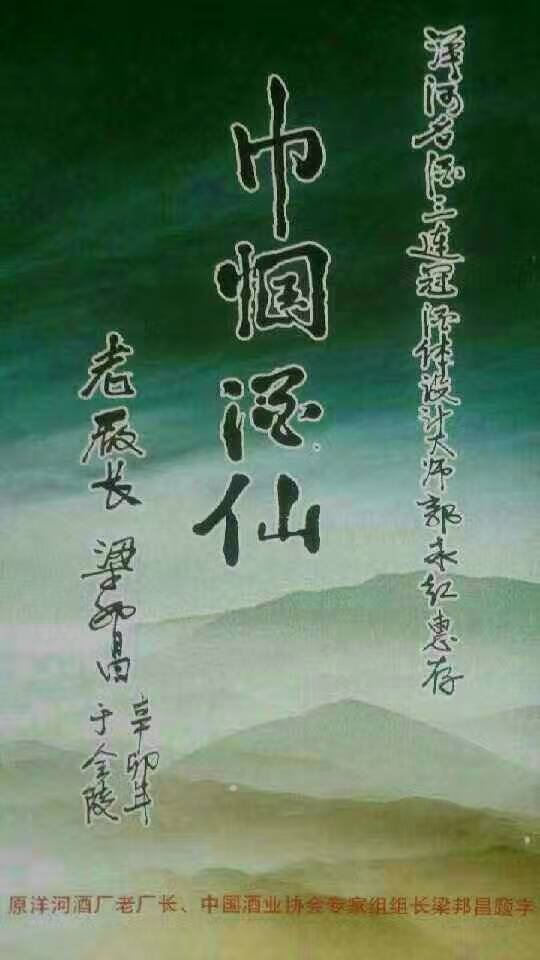 洋河名酒三连冠酒体设计大师郭永红惠存
巾帼酒仙
老厰长 梁邦昌
辛卯年
于金陵
原洋河酒厂老厂长、中国酒业协会专家组组长梁邦昌题字